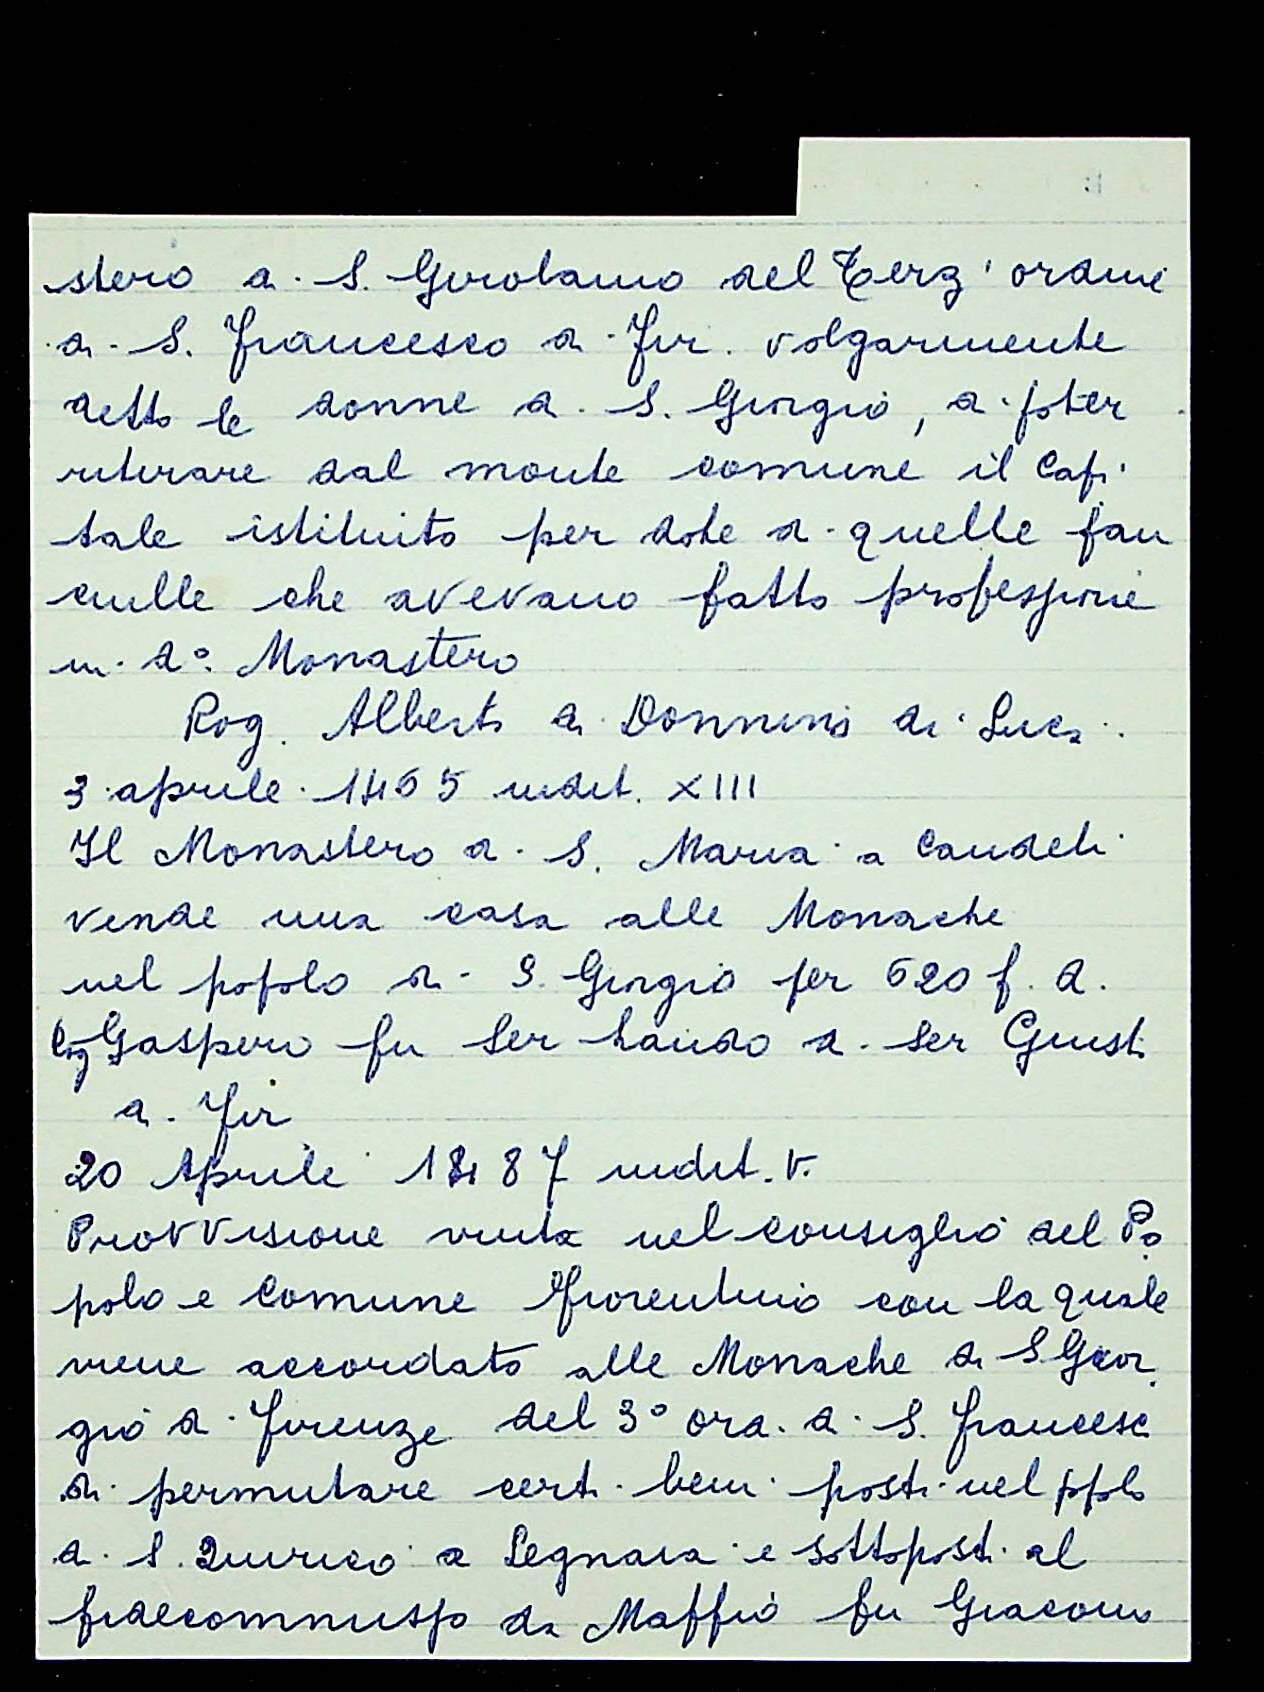 stero di S. Girolamo del Terz'ordine
di S. Francesco di Fir. volgarmente
detto le donne di S. Giorgio, di poter
ritirare dal monte comune il Capi
tale istituito per dote di quelle fan
ciulle che avevano fatto professione
in do. Monastero
Rog. Alberto di Donnino di Luca.
3 aprile 1465 indit. XIII
Il Monastero di S. Maria a Candeli
vende una casa alle Monache
nel popolo di S. Giorgio per 620 f. d.
Rog Gaspero fu Ser Santo di Ser Giusti
di Fir
20 Aprile 1487 indit. V.
Provvisione vinta nel consiglio del Po
polo e Comune Fiorentino con la quale
viene accordato alle Monache di S Gior
gio di Firenze del 3° ord. di S. Francesc
di permutare certi beni posti nel pplo
di S. Quirico a Legnaia e sottoposti al
fidecommisso da Maffio fu Giacomo